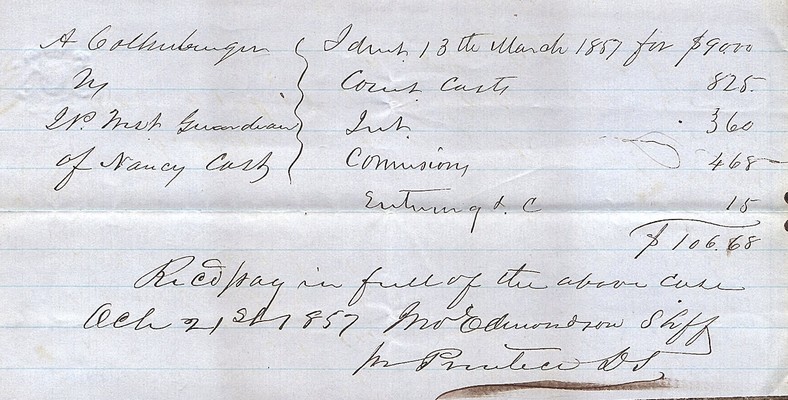 A Coltenberger
vs
J.P. West Guardian
of Nancy Cash
Judmt 13th March 1857 for $90.00
Court Costs 825.
Int. 360
Comissions 468
Entering &.C 15
$106.68
Recd pay in full of the above case
Oct 21st 1857 Jno Edmondson Shff
pr DS